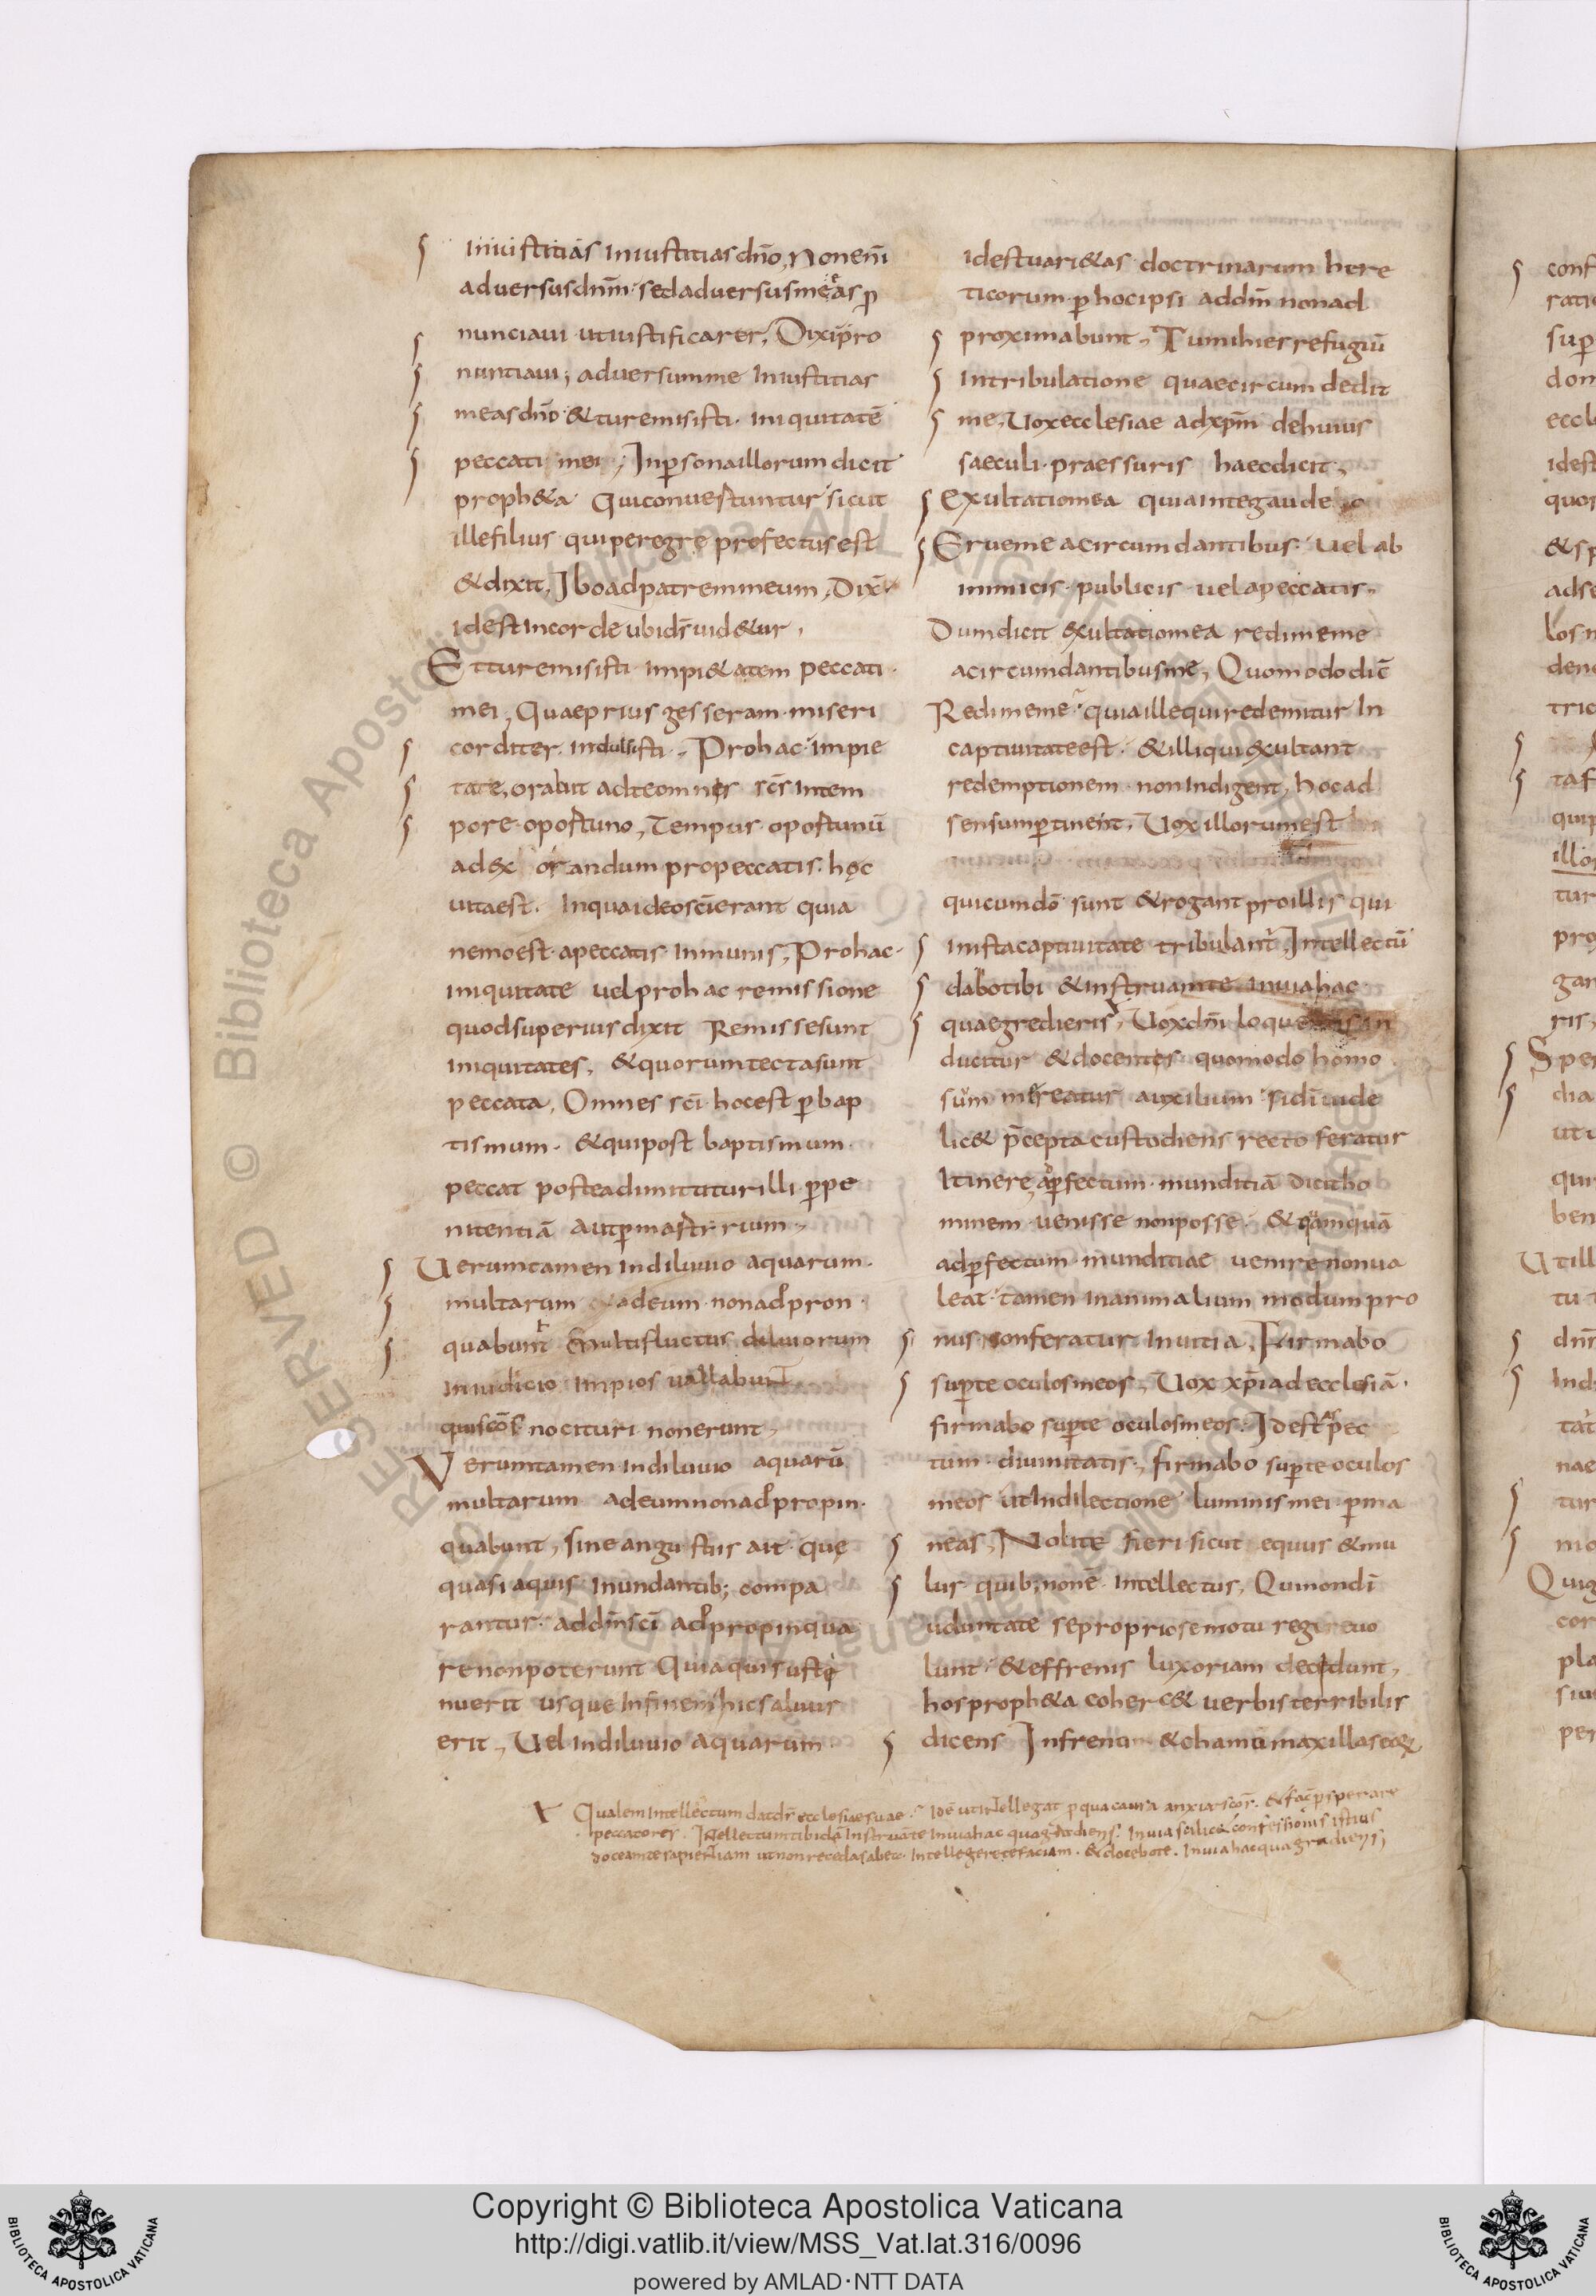 iniustitias iniustitias dño, Non eni͞
adversus dñm· sed adversus me eas p̱
nunciaui· ut iustificarer, Dixi pro
nuntiaui; adversum me iniustitias
meas dño· & tu remisisti· iniquitate͞
peccati mei; In p̱sona illorum dicit
proph&a Qui convestuntur sicut
ille filius qui peregre profectus est
& dixit, Ibo ad patrem meum, Dix̄
id est in corde ubi d̄s uid&ur,
Et tu remisisti impi&atem peccati·
mei, Quae prius gesseram· miseri
corditer indulsisti·, Pro hac impie
tate, orabit ad te omnes sc̄s in tem
pore· oportuno, Tempus oportunu͞
ad orandum pro peccatis· hęc
uita est· In qua ideo quia
nemo est· a peccatis inmunis, Pro hac·
iniquitate uel pro hac remissione
quod superius dixit Remisse sunt
iniquitates, & quorum tecta sunt
peccata, Omnes sc̄i· hoc est p̱ bap
tismum· & qui post baptismum·
peccat postea dimittitur illi p̱ pe
nitentia͞ aut p̱ martirium,
Verumtamen in diluuio aquarum·
multarum ad eum· non adpron·
quabunt Multi fluctus diluuiorum
in iudicio impios uallabunt
qui sc̄os nocituri non erunt,
Verumtamen in diluuio aquaru͞
multarum ad eum non adpropin·
quabunt, sine angustiis ait· que
quasi aquis inundantib; compa
rantur· ad dn̄m sc̄i adpropinqua
re non poterunt Quia qui susti
nuerit usque in finem hic saluus
erit, Vel in diluuio aquarum
id est uari&as· doctrinarum here
ticorum· p̱ hoc ipsi ad dn̄m non ad
proximabunt, Tu mihi es refugiu͞
in tribulatione quae circumdedit
me, Vox ecclesiae ad xp̄m de huius
saeculi· praessuris haec dicit,
Exultatio mea quia in te gaudebo
Erue me a circumdantibus· Vel ab
inimicis· publicis uel a peccatis,
Dum dicit exultatio mea redime me
a circumdantibus me, Quomodo dic͞
Redime me· quia ille qui redemitur in
captiuitate est· & illi qui exultant
redemptionem· non indigent, hoc ad
sensum p̱tinent, Vox illorum est
qui cum dō sunt & rogant pro illis qui
in ista captiuitate tribulant̄, Intellectu͞
dabo tibi & instruam te in uia hac
qua egredieris, Vox dn̄i
ducitur & docentes quomodo homo
suum mereatur auxilium si di͞
lic& p̄cepta custodiens recto feratur
itinere, ad p̱fectum· munditia͞ dicit ho
minem· uenisse non posse· & quamqua͞
ad p̱fectum· munditiae uenire non ua
leat· tamen in animalium modum pro
nus conferatur in uitia, Firmabo
sup̱ te oculos meos, Vox xp̄i ad ecclesia͞·
firmabo sup̱ te oculos meos· Id est aspec
tum· diuinitatis, firmabo sup̱ te oculos
meos ut in dilectione luminis mei· p̱ma
neas, Nolite fieri sicut equus & mu
lus quib; non ē intellectus, Qui non di͞
uoluntate se proprio se motu regere uo
lunt· & effrenis luxoriam decidunt,
hos proph&a coherc& uerbis terribilis
dicens In freno & chamu maxillas eoꝝ
Qualem intellectum dat dn̄s ecclesiae suae· id ē ut intellegat p̱ qua causa anxiat scor̄· & fac p̱ sperare
peccatores· Intellectum tibi da͞ instrua͞ te in uia hac qua gredieris· in uia scilic& confessionis istius
doceam te sapientiam ut non recedas ab ec· Intellegere te faciam· & docebo te· in uia hac qua gradieris
conf
ratio
sup̱
dom
eccle
id est
quos
& sp
ad se
los
dene
tric
ta
quip
illo
tur
pro
gar
ris,
Sper
dia
ut
qui
ben
Vtill
tu
dn̄
ind
tat
nae
tur
mo
Quia
cor
pla
siu
per
RESERVED © Biblioteca Apostolica Vaticana. ALL RIGHTS
BIBLIOTECA APOSTOLICA VATICANA
Copyright © Biblioteca Apostolica Vaticana
http://digi.vatlib.it/view/MSS_Vat.lat.316/0096
powered by AMLAD·NTT DATA
BIBLIOTECA APOSTOLICA VATICANA